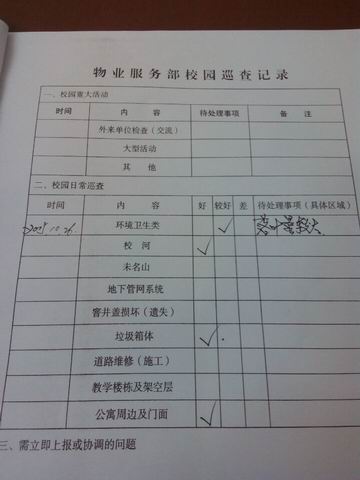 物业服务部校园巡查记录
一、校园重大活动
时间 内 容 待处理事项 备 注
外来单位检查（交流）
大型活动
其 他
二、校园日常巡查
时间 内 容 好 较好 差 待处理事项（具体区域）
2025.10.26. 环境卫生类 ✓ 落叶量较大
校 河 ✓
未名山
地下管网系统
窨井盖损坏（遗失）
垃圾箱体 ✓
道路维修（施工）
教学楼栋及架空层
公寓周边及门面 ✓
三、需立即上报或协调的问题